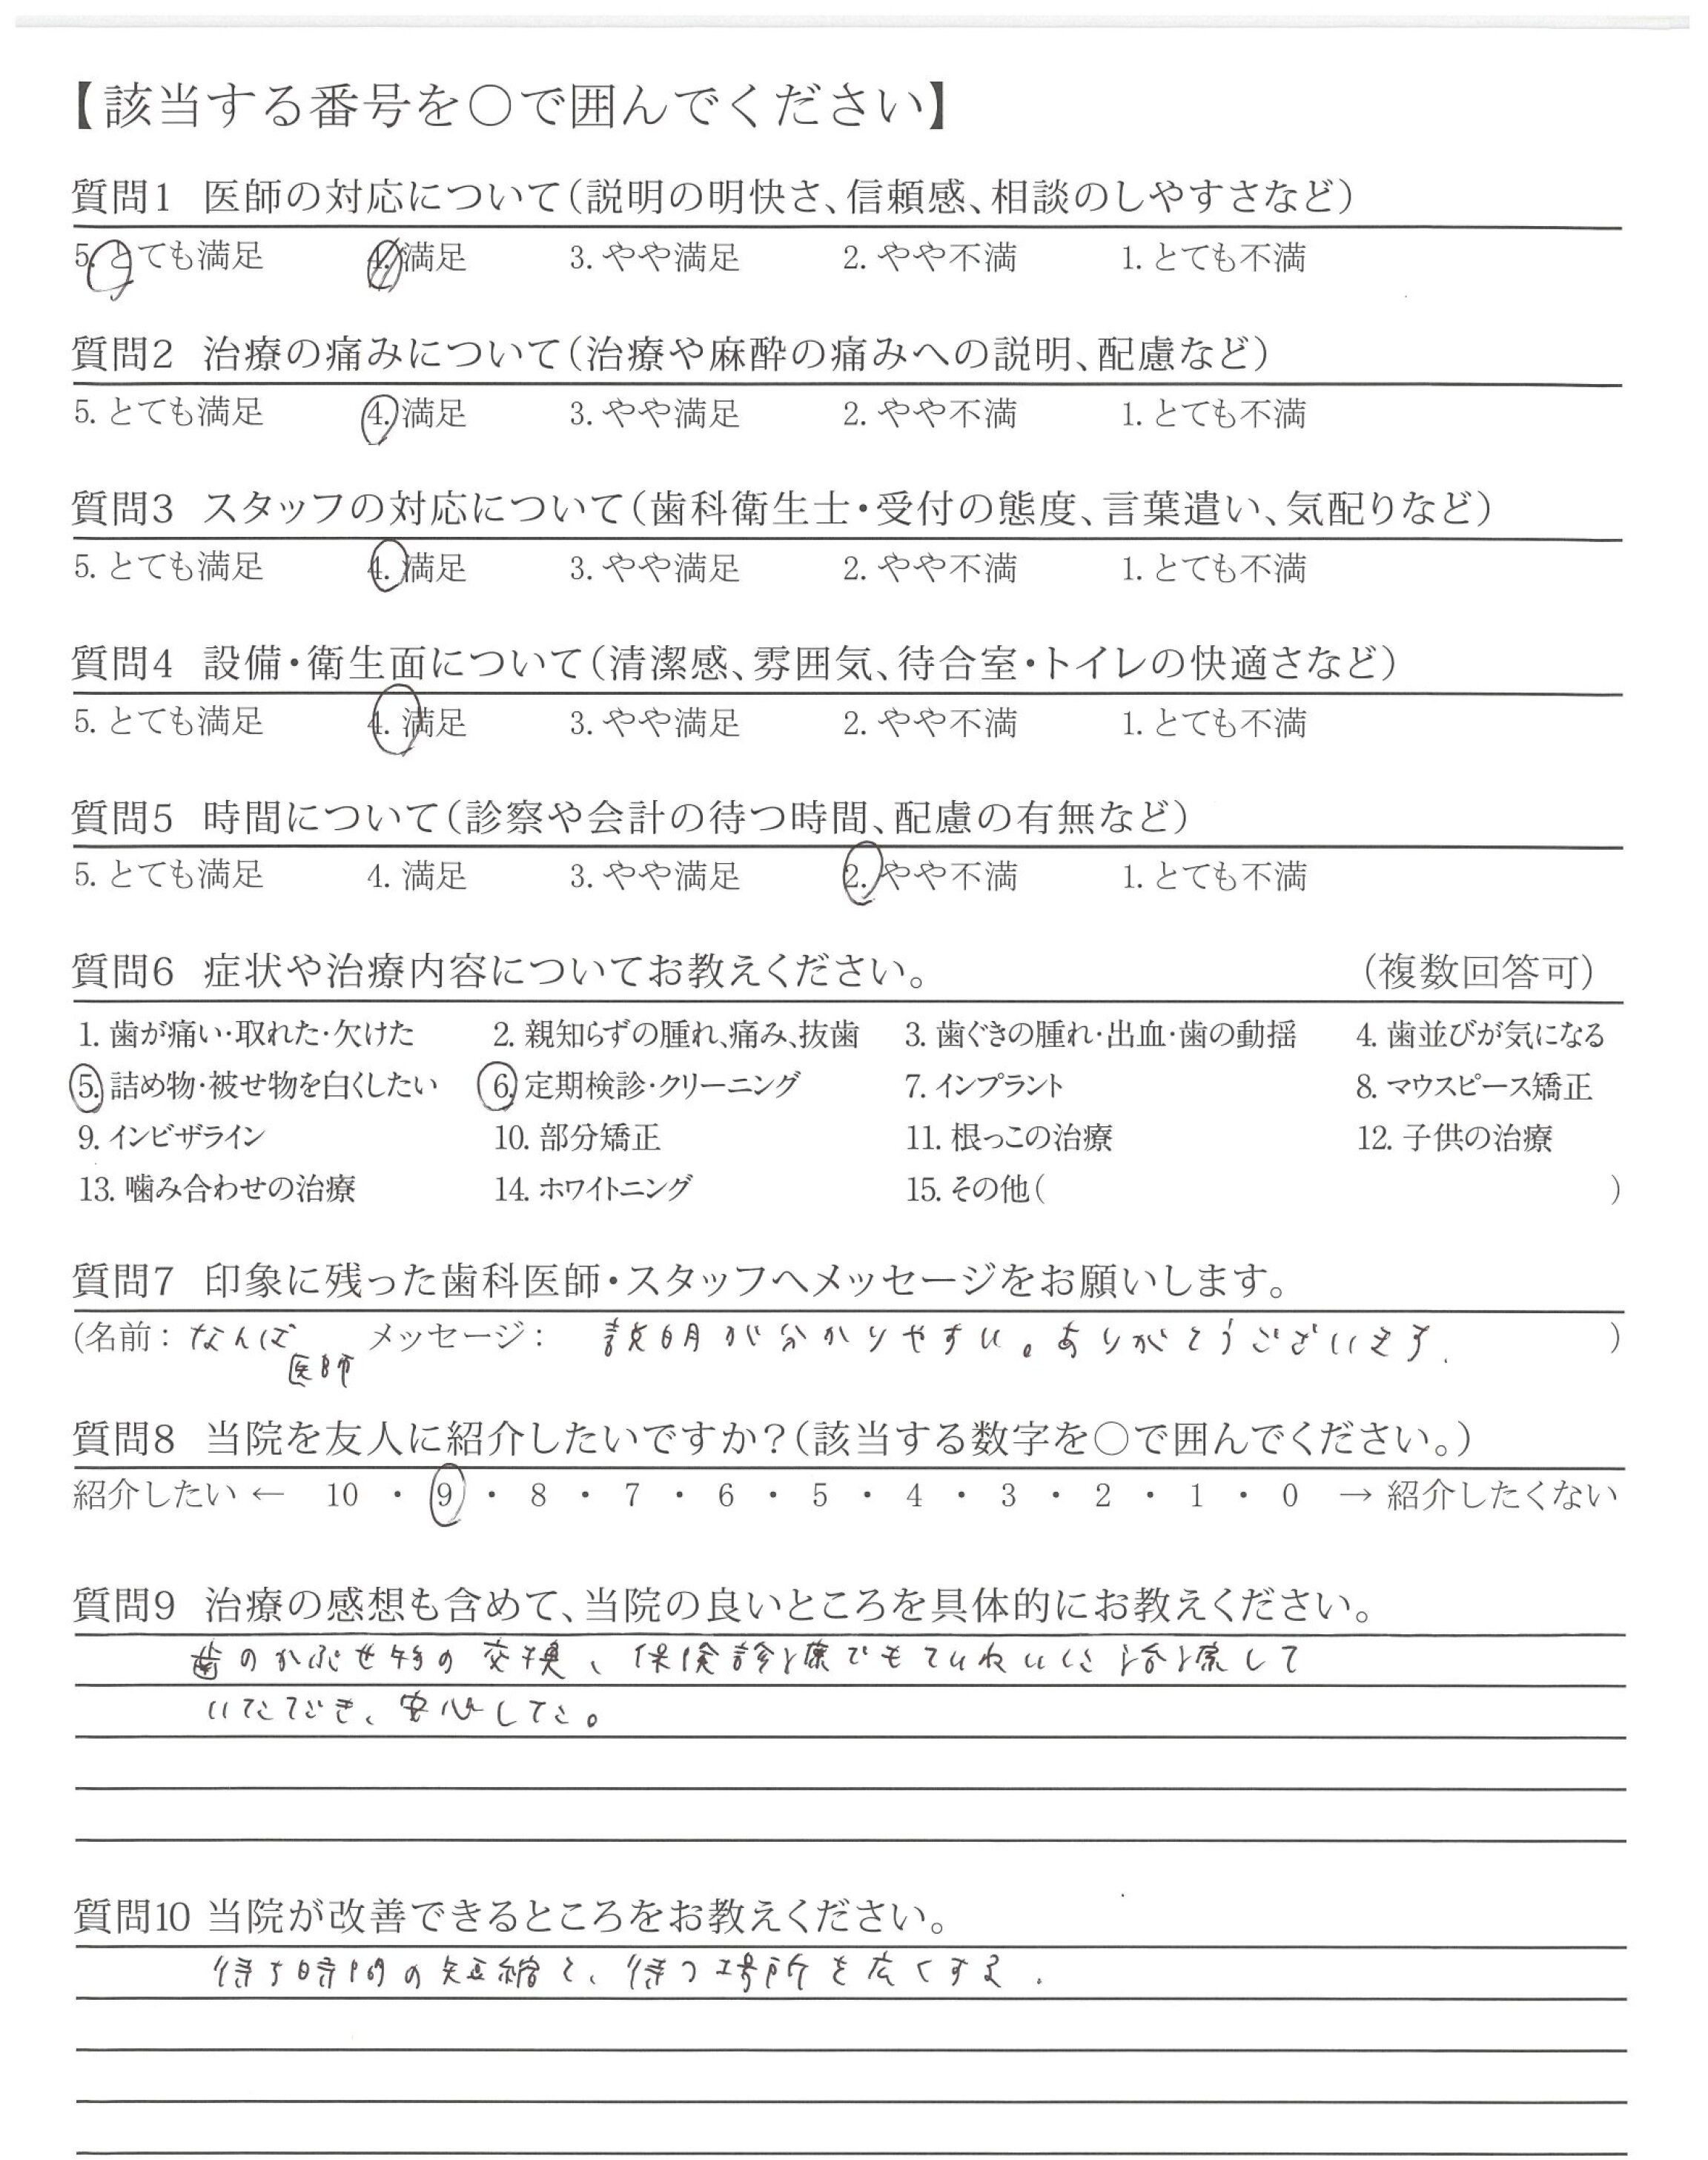 【該当する番号を○で囲んでください】
質問1 医師の対応について(説明の明快さ、信頼感、相談のしやすさなど)
5. とても満足 4. 満足 3. やや満足 2. やや不満 1. とても不満
質問2 治療の痛みについて(治療や麻酔の痛みへの説明、配慮など)
5. とても満足 4. 満足 3. やや満足 2. やや不満 1. とても不満
質問3 スタッフの対応について(歯科衛生士・受付の態度、言葉遣い、気配りなど)
5. とても満足 4. 満足 3. やや満足 2. やや不満 1. とても不満
質問4 設備・衛生面について(清潔感、雰囲気、待合室・トイレの快適さなど)
5. とても満足 4. 満足 3. やや満足 2. やや不満 1. とても不満
質問5 時間について(診察や会計の待つ時間、配慮の有無など)
5. とても満足 4. 満足 3. やや満足 2. やや不満 1. とても不満
質問6 症状や治療内容についてお教えください。 (複数回答可)
1. 歯が痛い・取れた・欠けた 2. 親知らずの腫れ、痛み、抜歯 3. 歯ぐきの腫れ・出血・歯の動揺 4. 歯並びが気になる
5. 詰め物・被せ物を白くしたい 6. 定期検診・クリーニング 7. インプラント 8. マウスピース矯正
9. インビザライン 10. 部分矯正 11. 根っこの治療 12. 子供の治療
13. 噛み合わせの治療 14. ホワイトニング 15. その他( )
質問7 印象に残った歯科医師・スタッフへメッセージをお願いします。
(名前: なんば メッセージ: 説明が分かりやすい。ありがとうございます. )
医師
質問8 当院を友人に紹介したいですか?(該当する数字を○で囲んでください。)
紹介したい ← 10 ・ 9 ・ 8 ・ 7 ・ 6 ・ 5 ・ 4 ・ 3 ・ 2 ・ 1 ・ 0 → 紹介したくない
質問9 治療の感想も含めて、当院の良いところを具体的にお教えください。
歯のかぶせ物の交換、保険診療でもていねいに治療して
いただき、安心した。
質問10 当院が改善できるところをお教えください。
待ち時間の短縮と、待つ場所を広くする.